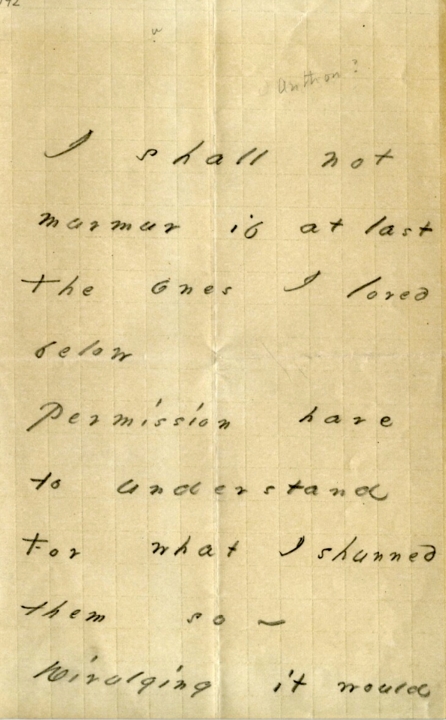 I shall not
murmur if at last
the ones I loved
below
Permission have
to understand
For what I shunned
them so –
Divulging it would